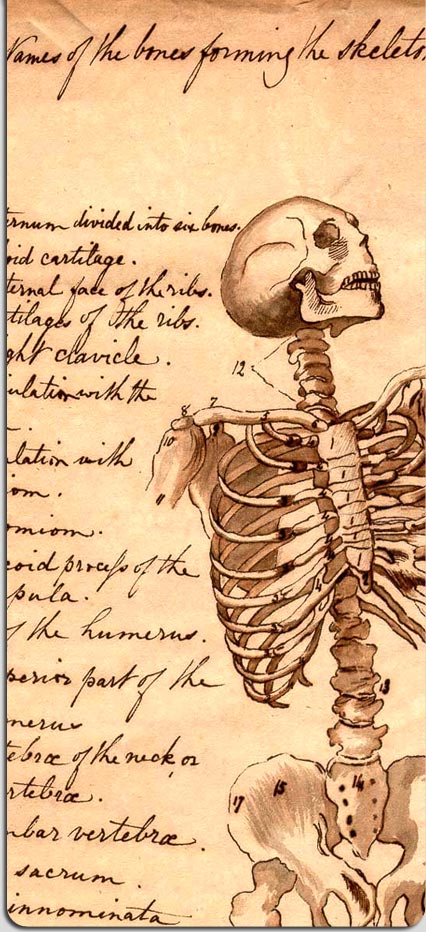 Names of the bones forming the skeleton
ternum divided into six bones.
oid cartilage.
ternal face of the ribs.
tilages of the ribs.
ght clavicle.
culation with the
ulation with
om.
omiom.
coid process of the
pula.
f the humerus.
perior part of the
merus
tebræ of the neck, or
rtebræ.
mbar vertebræ.
sacrum.
innominata
12
8
7
9
10
11
13
14
15
17